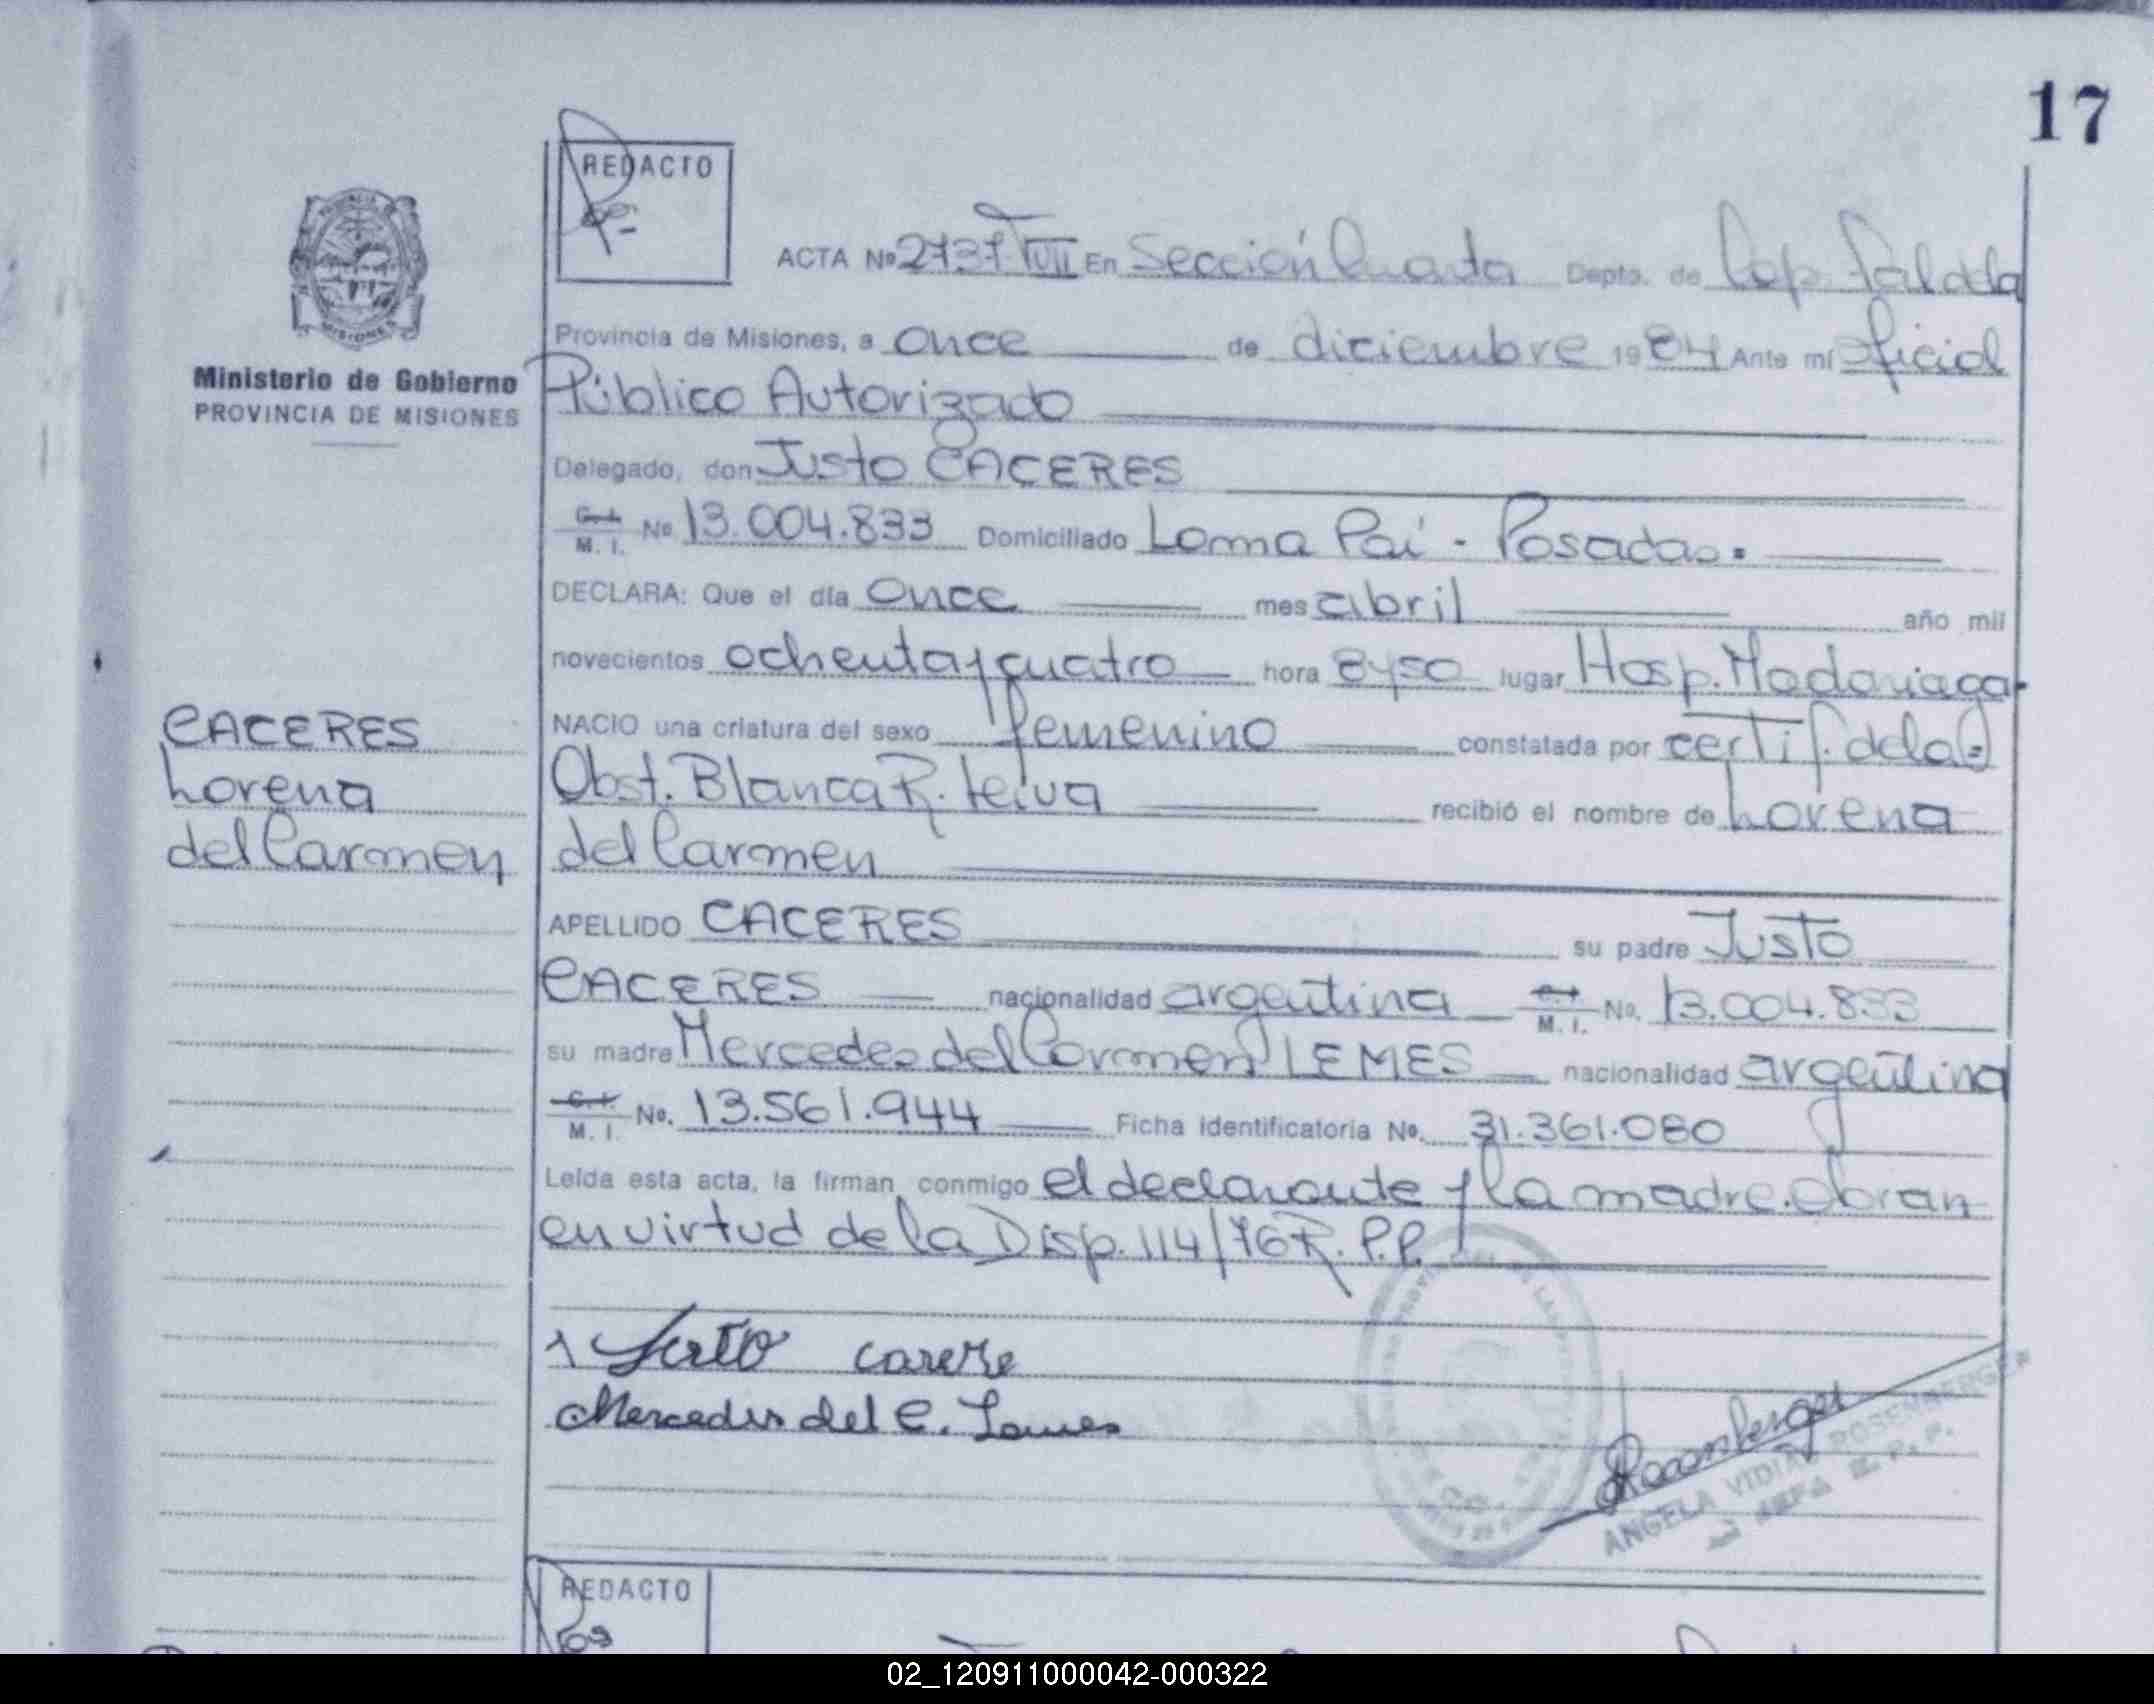 17
REDACTO
ACTA Nº 2737 TVII En Sección Cuarta Depto. de Cap. Fal de la
Provincia de Misiones, a once de diciembre 1984 Ante mí Oficial
Ministerio de Gobierno
PROVINCIA DE MISIONES
Público Autorizado
Delegado, don Justo CACERES
C. I. M. I. Nº 13.004.833 Domiciliado Loma Pai - Posadas.
DECLARA: Que el día once mes abril año mil
novecientos ochenta y cuatro hora 8y50 lugar Hosp. Madariaga
CACERES
Lorena
del Carmen
NACIO una criatura del sexo femenino constatada por certif. dela
Obst. Blanca R. Leiva recibió el nombre de Lorena
del Carmen
APELLIDO CACERES su padre Justo
CACERES nacionalidad argentina C. I. M. I. No. 13.004.833
su madre Mercedes del Carmen LEMES nacionalidad argentina
C. I. M. I. No. 13.561.944 Ficha identificatoria Nº. 31.361.080
Leída esta acta, la firman conmigo el declarante y la madre. obran
en virtud de la Disp. 114/76 R.P.P.
Justo
Mercedes del C. Lemes
Rosenberger
ANGELA ROSENBERGER
JEFA R.P.P.
REDACTO
02_120911000042-000322